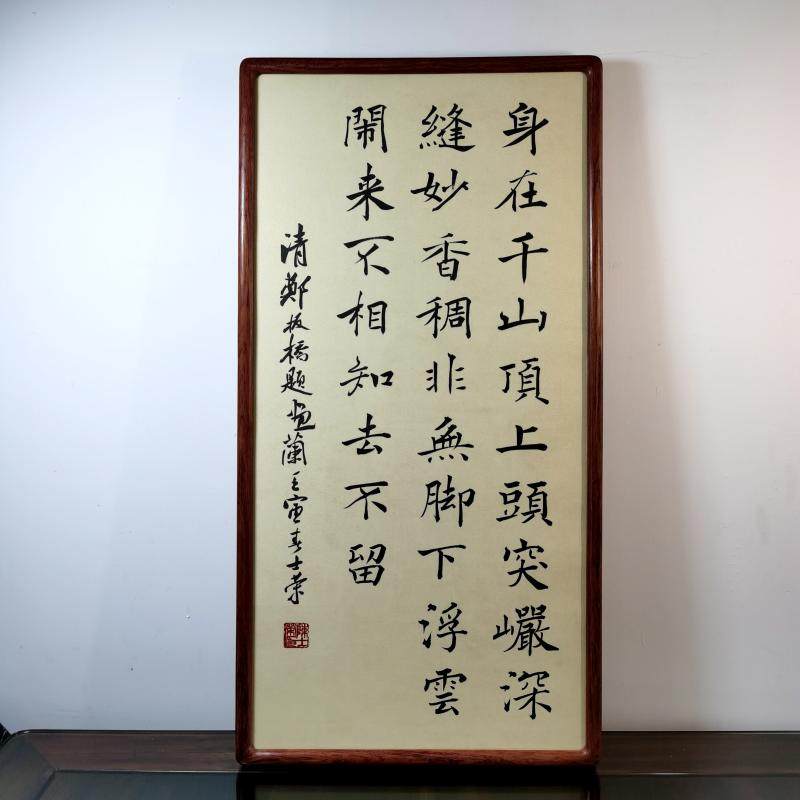 身在千山頂上頭突巖深
縫妙香稠非無脚下浮雲
鬧来不相知去不留
清鄭板橋題畫蘭壬寅春士荣